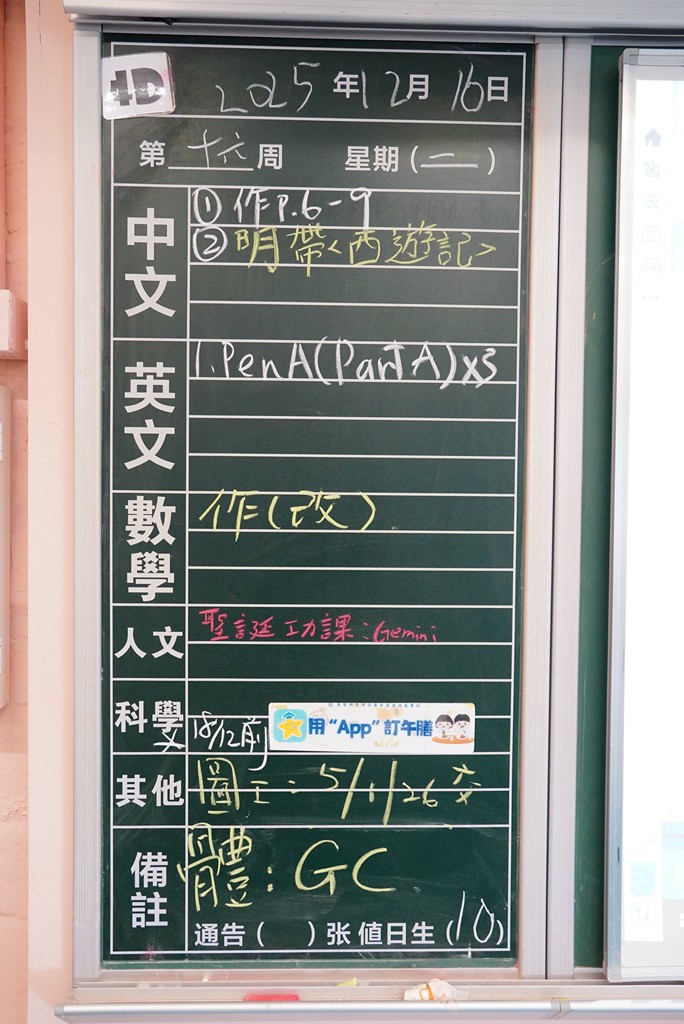 4D
2025年12月16日
第十六周 星期(二)
中文
① 作P.6-9
② 明帶<西遊記>
英文
1. Pen A (Part A) x3
數學
作(改)
人文
聖誕功課:Gemini
科學
18/12前
用“App”訂午膳
其他
圖工:5/1/26 交
備註
體:GC
通告( )张 值日生(10)